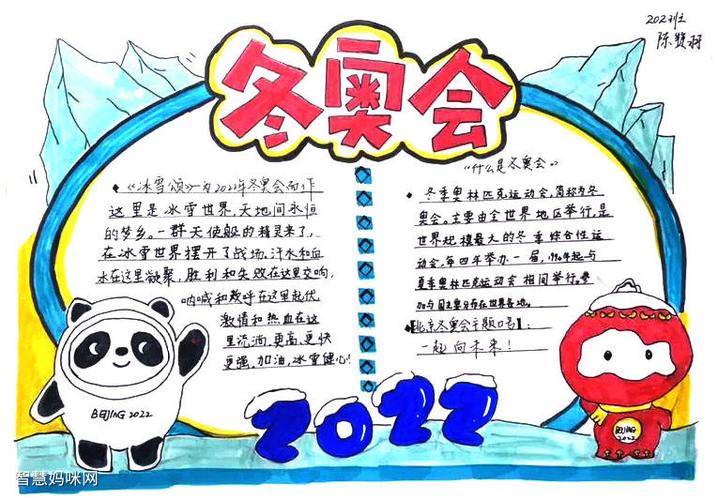 202班
陈贊羽
冬奥会
《冰雪颂》为2022年冬奥会而作
这里是冰雪世界，天地间永恒
的梦乡。一群天使般的精灵来了，
在冰雪世界摆开了战场，汗水和血
水在这里凝聚，胜利和失败在这里交响，
呐喊和欢呼在这里起伏
激情和热血在这
里流淌，更高，更快
更强，加油，冰雪健心！
“什么是冬奥会。”
冬季奥林匹克运动会，简称为冬
奥会。主要由全世界地区举行，是
世界规模最大的冬季综合性运
动会，每四年举办一届，1994年起与
夏季奥林匹克运动会相间举行。参
加与国主要分布在世界各地。
【北京冬奥会主题口号】：
一起向未来！
BEIJING 2022
2022
BEIJING
2022
智慧妈咪网